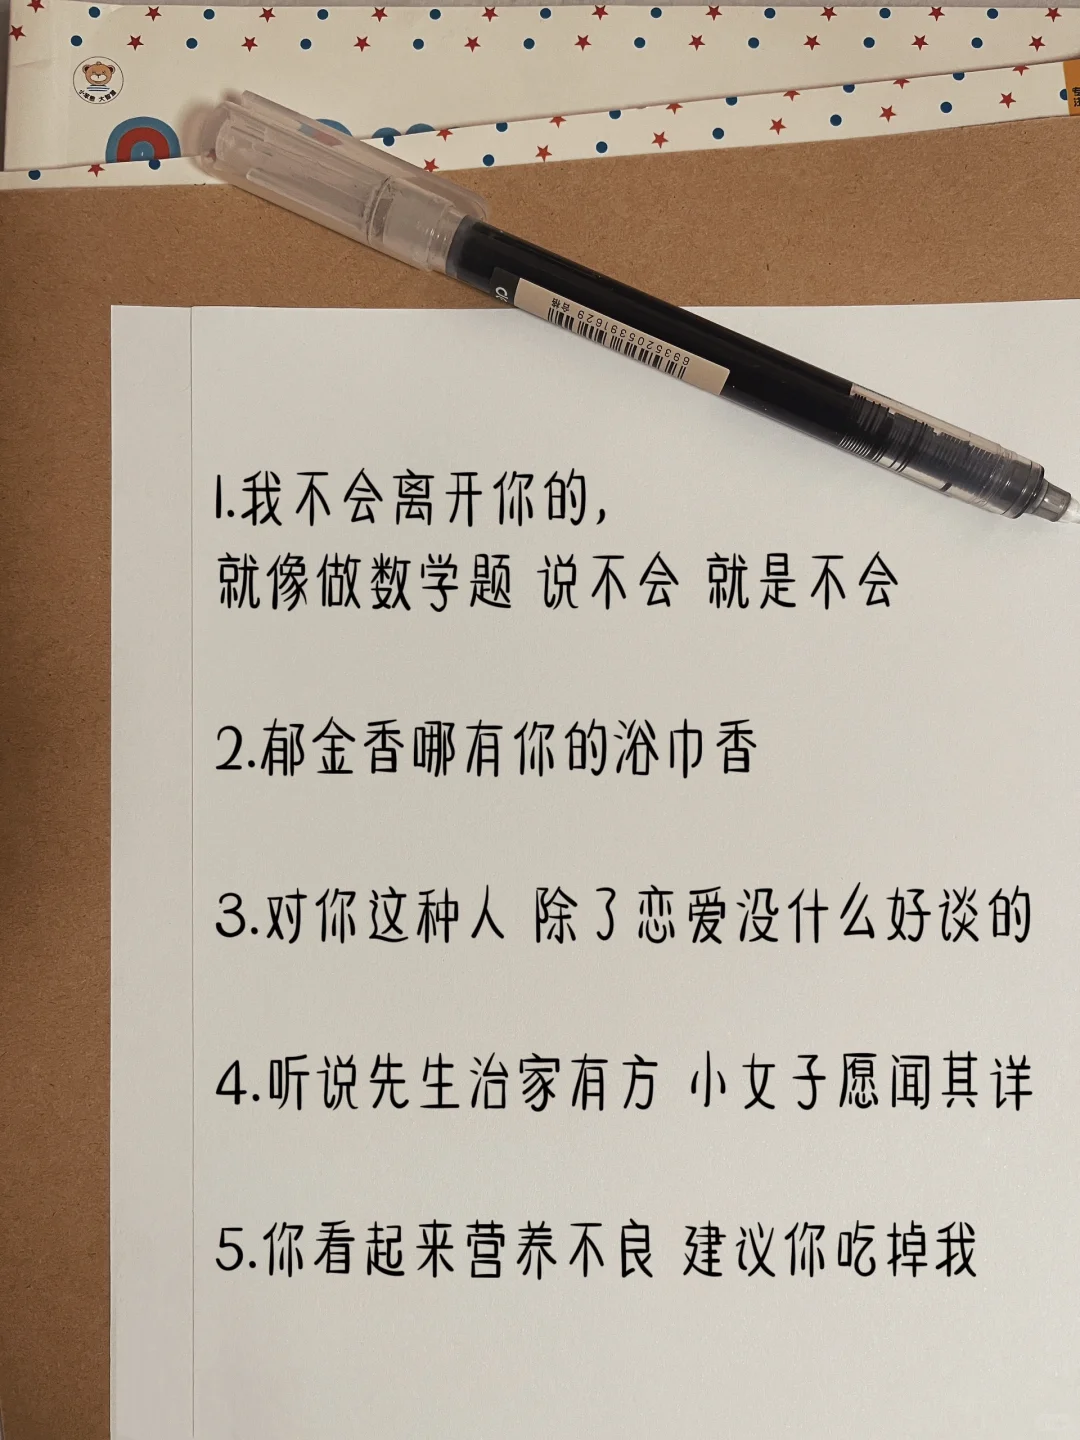 小笨熊 大智慧
专注
合格
6935205391629
1.我不会离开你的,
就像做数学题 说不会 就是不会
2.郁金香哪有你的浴巾香
3.对你这种人 除了恋爱没什么好谈的
4.听说先生治家有方 小女子愿闻其详
5.你看起来营养不良 建议你吃掉我